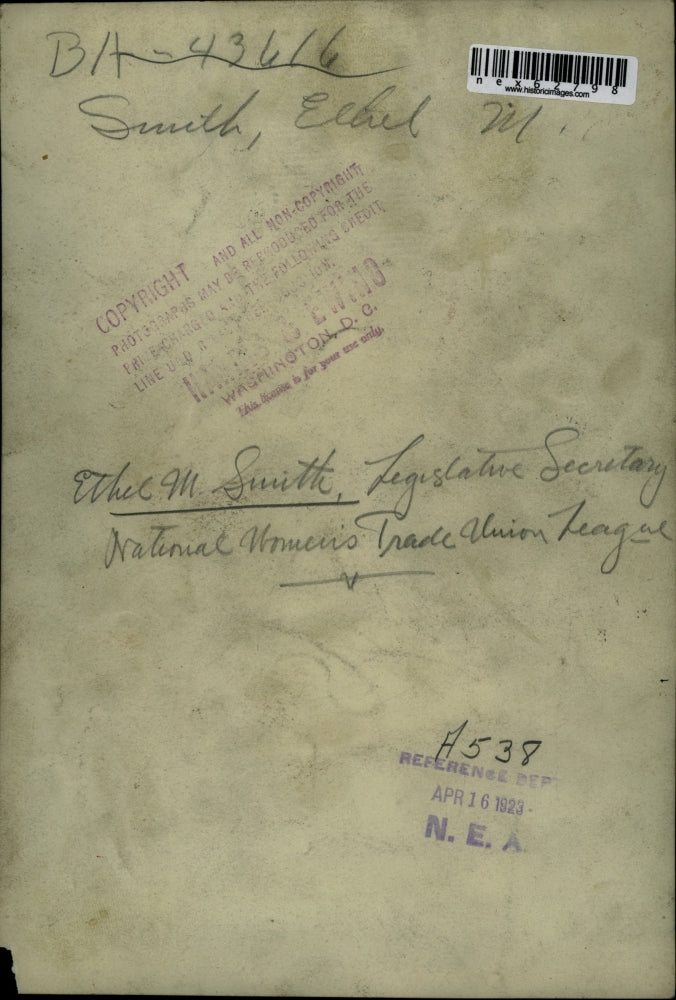 BH-43616
nex62798
www.historicimages.com
Smith, Ethel M.
COPYRIGHT AND ALL NON-COPYRIGHT
PHOTOGRAPHS MAY BE REPRODUCED FOR THE
THE FOLLOWING CREDIT
LINE
& EWING
WASHINGTON, D. C.
This license is for your use only.
Ethel M. Smith, Legislative Secretary
National Women's Trade Union League
A538
REFERENCE DEPT
APR 16 1923
N. E. A.